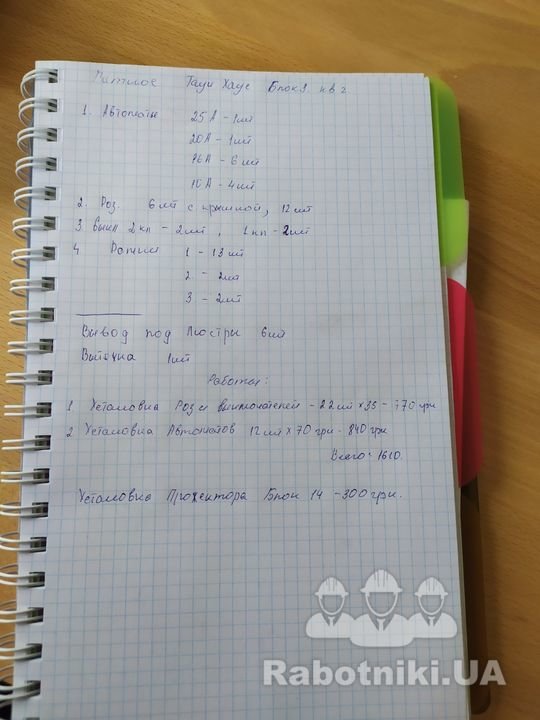 Уютное Таун Хаус Блок 1 кв 2.
1. Автоматы 25А - 1шт
20А - 1шт
16А - 6 шт
10А - 4шт
2. Роз. 6шт с крышкой, 12шт
3 Выкл 2кл - 2шт, 1кл - 2шт
4 Рамки 1 - 13шт
2 - 2шт
3 - 2шт
Вывод под Люстры 6шт
Вытяжка 1шт
Работы:
1 Установка Роз и выключателей - 22шт х 35 - 770 грн
2 Установка Автоматов 12шт х 70 грн - 840 грн
Всего: 1610.
Установка Прожектора Блок 14 - 300 грн.
Rabotniki.UA